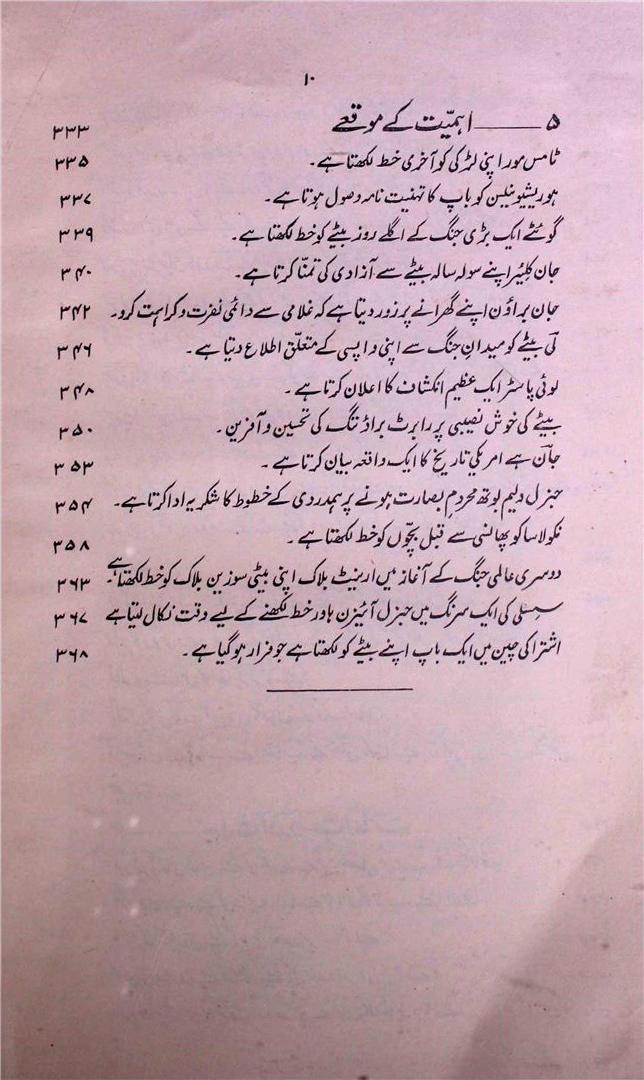 ۱۰
۵ ——— اہمیّت کے موقعے ۳۳۳
ٹامس مور اپنی لڑکی کو آخری خط لکھتا ہے۔ ۳۳۵
ہوریشیو نیلسن کو باپ کا تہنیت نامہ وصول ہوتا ہے۔ ۳۳۷
گوئٹے ایک بڑی جنگ کے اگلے روز بیٹے کو خط لکھتا ہے۔ ۳۳۹
جان کلیئر اپنے سولہ سالہ بیٹے سے آزادی کی تمنّا کرتا ہے۔ ۳۴۰
جان براؤن اپنے گھرانے پر زور دیتا ہے کہ غلامی سے دائمی نفرت و کراہت کرو۔ ۳۴۲
لی بیٹے کو میدانِ جنگ سے اپنی واپسی کے متعلّق اطلاع دیتا ہے۔ ۳۴۶
لوئی پاسٹر ایک عظیم انکشاف کا اعلان کرتا ہے۔ ۳۴۸
بیٹے کی خوش نصیبی پر رابرٹ براؤننگ کی تحسین و آفرین۔ ۳۵۰
جان ہے امریکی تاریخ کا ایک واقعہ بیان کرتا ہے۔ ۳۵۳
جنرل ولیم بوتھ محرومِ بصارت ہونے پر ہمدردی کے خطوط کا شکریہ ادا کرتا ہے۔ ۳۵۴
نکولا ساکو پھانسی سے قبل بچّوں کو خط لکھتا ہے۔ ۳۵۸
دوسری عالمی جنگ کے آغاز میں ارنیٹ بلاک اپنی بیٹی سوزین بلاک کو خط لکھتا ہے۔ ۳۶۳
سسلی کی ایک سرنگ میں جنرل آئیزن ہاور خط لکھنے کے لیے وقت نکال لیتا ہے ۳۶۷
اشتراکی چین میں ایک باپ اپنے بیٹے کو لکھتا ہے جو فرار ہو گیا ہے۔ ۳۶۸